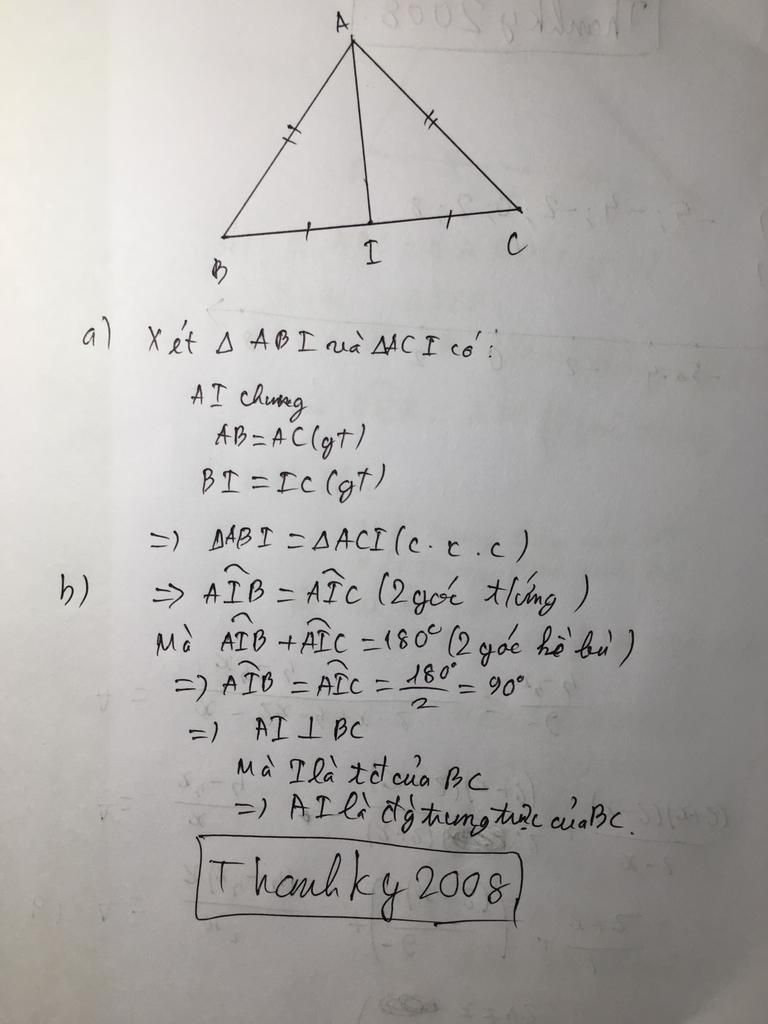 A
B
I
C
a) Xét Δ ABI và ΔACI có:
AI chung
AB = AC (gt)
BI = IC (gt)
=> ΔABI = ΔACI (c.c.c)
b) => AÎB = AÎC (2 góc t/ứng)
Mà AÎB + AÎC = 180° (2 góc kề bù)
=> AÎB = AÎC = 180°/2 = 90°
=> AI ⊥ BC
Mà I là tđ của BC
=> AI là đg trung trực của BC.
Thanhky 2008